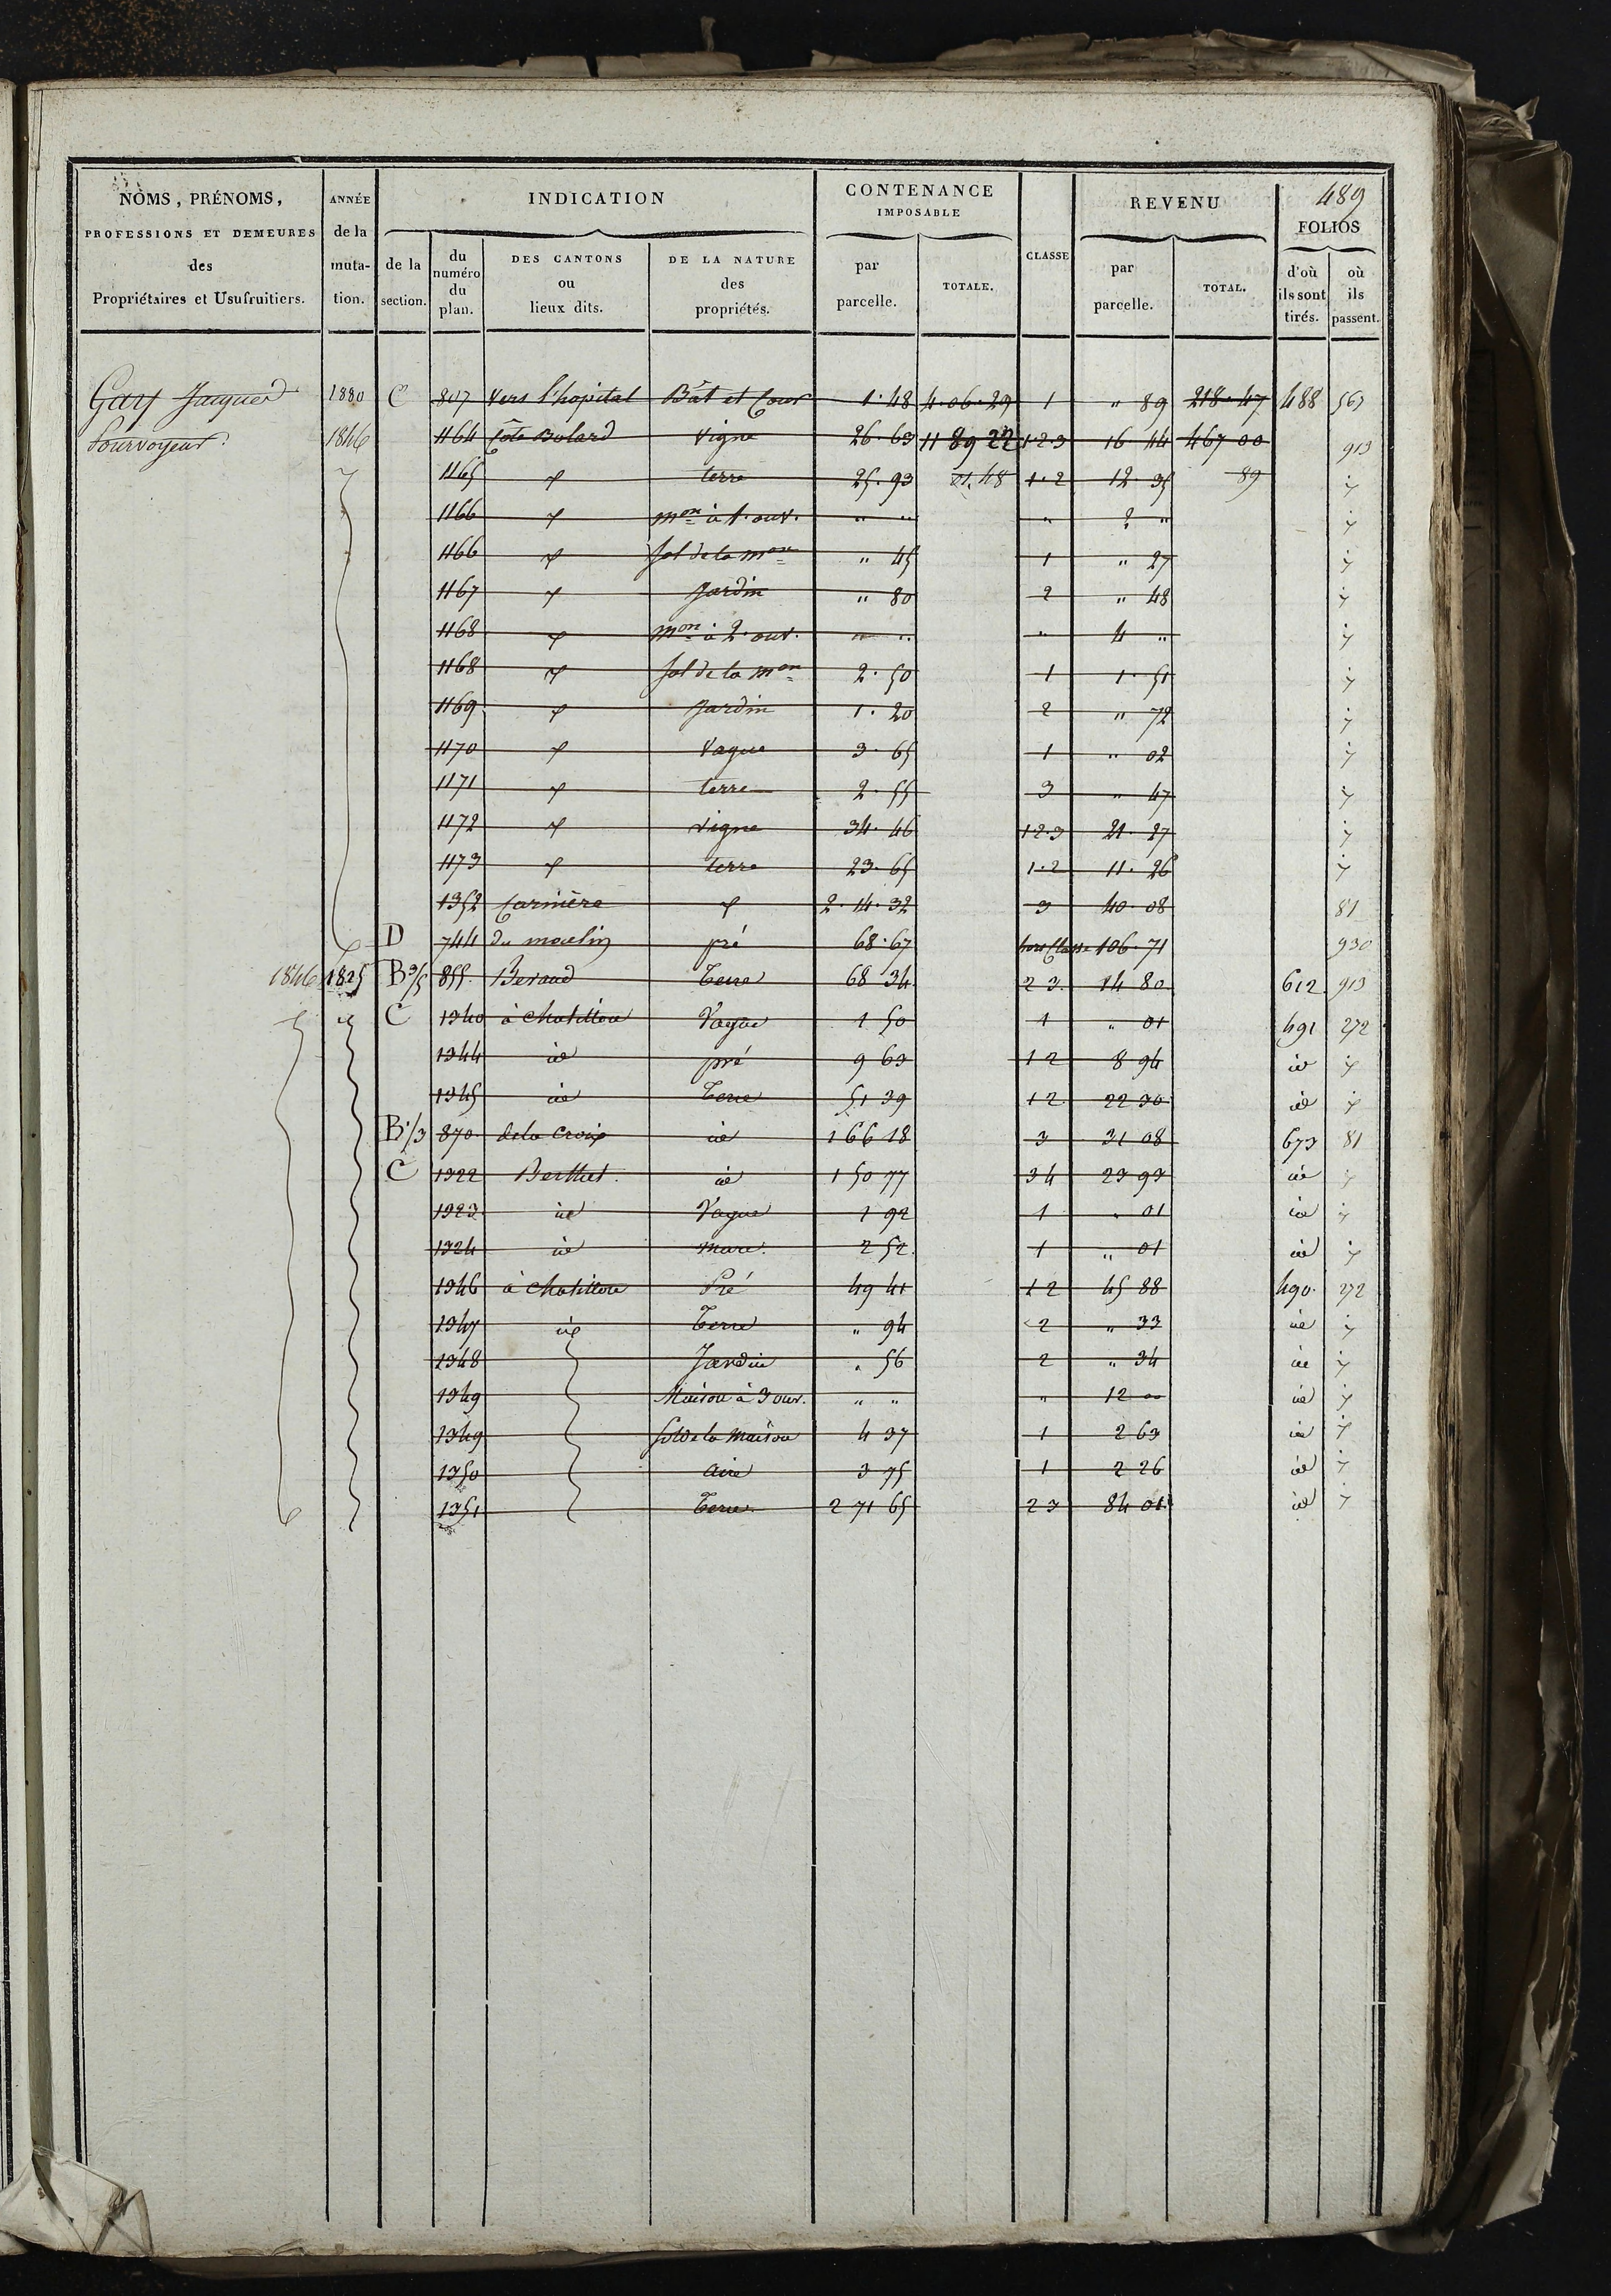 489
NOMS, PRÉNOMS, PROFESSIONS ET DEMEURES des Propriétaires et Usufruitiers.
ANNÉE de la muta- tion.
INDICATION
de la section.
du numéro du plan.
DES CANTONS ou lieux dits.
DE LA NATURE des propriétés.
CONTENANCE IMPOSABLE
par parcelle.
TOTALE.
CLASSE
REVENU
par parcelle.
TOTAL.
FOLIOS
d'où ils sont tirés.
où ils passent.
Gary Jacques 1830 C 807 Vers l'hopital Bât et Cour 1.48 4.06.29 1 " 89 218.47 488 563
Pourvoyeur. 1846 1164 Côte Bolard Vigne 26.63 11 89 22 1.2.3 16 14 467 00 913
1165 " terre 25.93 01.48 1.2 12.35 89 "
1166 " mon à 1. ouv. " " " 2 " "
1166 " sol de la mon " 45 1 " 27 "
1167 " Jardin " 80 2 " 48 "
1168 " mon à 2. ouv. " " " 4 " "
1168 " sol de la mon 2.50 1 1.51 "
1169 " Jardin 1.20 2 " 72 "
1170 " Vague 3.65 1 " 02 "
1171 " terre 2.55 3 " 47 "
1172 " vigne 34.46 1.2.3 21.27 "
1173 " terre 23.65 1.2 11.26 "
1352 Carrière " 2.14.32 3 40.08 81
D 744 du moulin pré 68.67 hors Classe 106.71 930
1846 1825 B3/5 855 Beraud Terre 68 34 2 3 14 80 612 913
" id C 1340 à Chatillon Vague 1 50 1 " 01 491 272
1344 id pré 9 63 1 2 8 94 id "
1345 id Terre 51 39 1 2 22 30 id "
B1/3 870 de la Croix id 1 66 18 3 31 08 673 81
C 1322 Berthet id 1 50 77 3 4 23 93 id "
1323 id Vague 1 92 1 " 01 id "
1324 id mare 2 52 1 " 01 id "
1346 à Chatillon Pré 49 41 1 2 45 88 490 272
1347 id Terre " 94 2 " 33 id "
1348 Jardin " 56 2 " 34 id "
1349 Maison à 3 ouv. " " " 12 00 id "
1349 sol de la maison 4 37 1 2 63 id "
1350 aire 3 75 1 2 26 id "
1351 Terre 2 71 65 2 3 84 01 id "